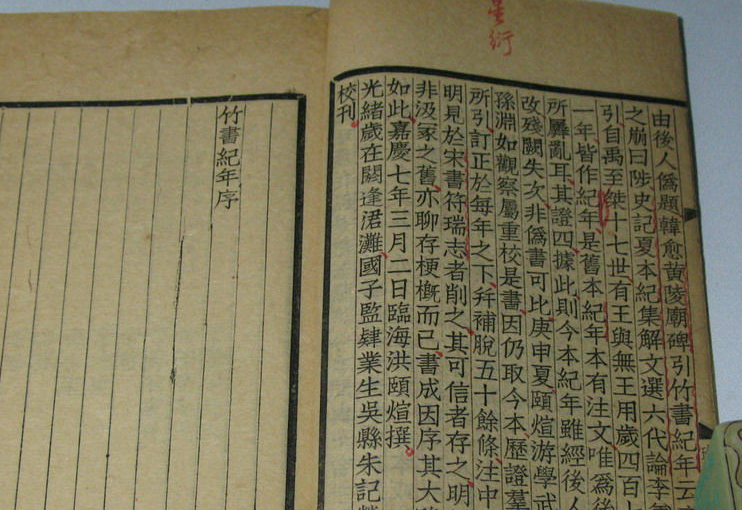 星衍
由後人僞題韓愈黃陵廟碑引竹書紀年云
之崩曰陟史記夏本紀集解文選六代論李
引自禹至桀十七世有王與無王用歲四百七
一年皆作紀年是舊本紀年本有注文唯爲後
所羼亂耳其證四據此則今本紀年雖經後人
改殘闕失次非僞書可比庚申夏頤煊游學武
孫淵如觀察屬重校是書因仍取今本歷證羣
所引訂正於每年之下幷補脫五十餘條注中
明見於宋書符瑞志者削之其可信者存之明
非汲冢之舊亦聊存梗槪而已書成因序其大
如此嘉慶七年三月二日臨海洪頤煊撰
光緒歲在閼逢涒灘國子監肄業生吳縣朱記榮
校刊
竹書紀年序